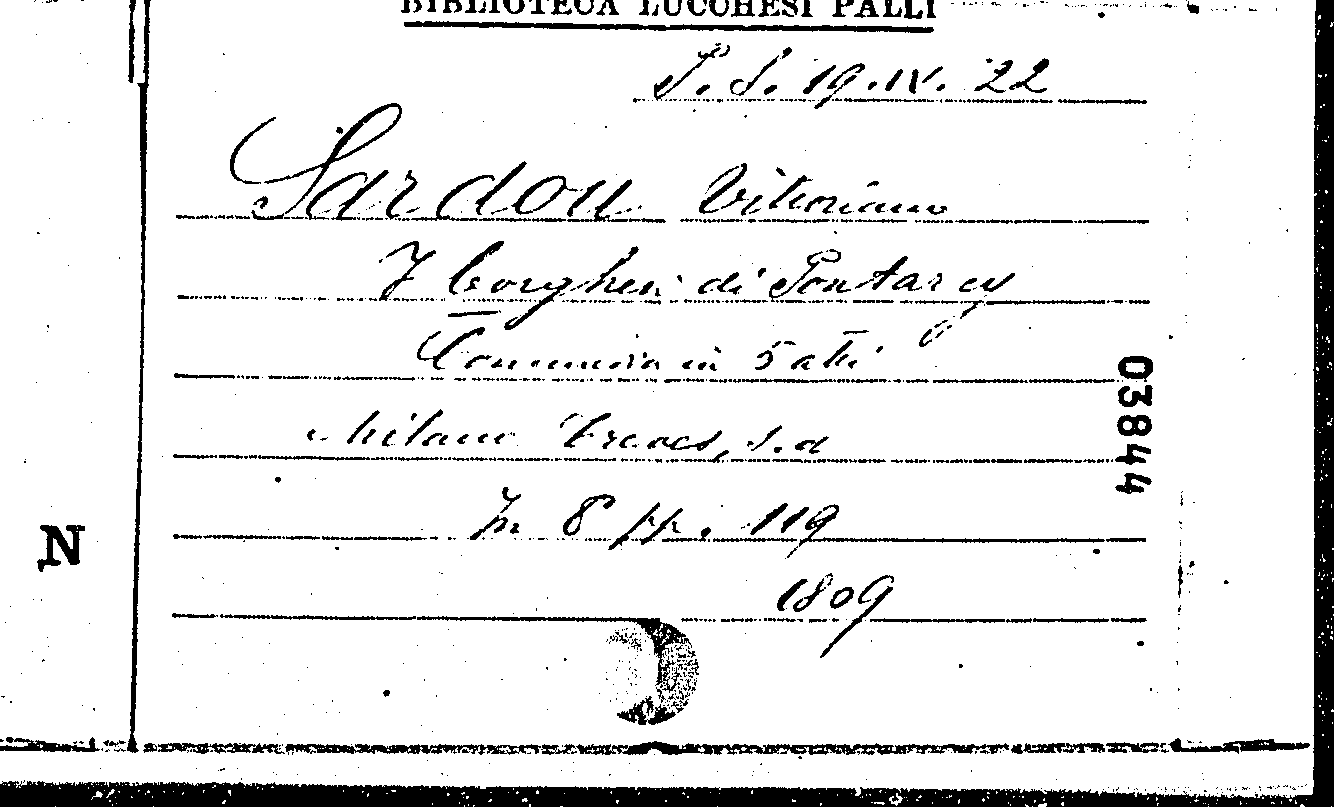 BIBLIOTECA LUCCHESI PALLI
P. S. 19.IV.22
Sardou Vittoriano
I borghesi di Pontarcy
Commedia in 5 atti
Milano Treves, s.d
In 8° pp. 119
1809
03844
N